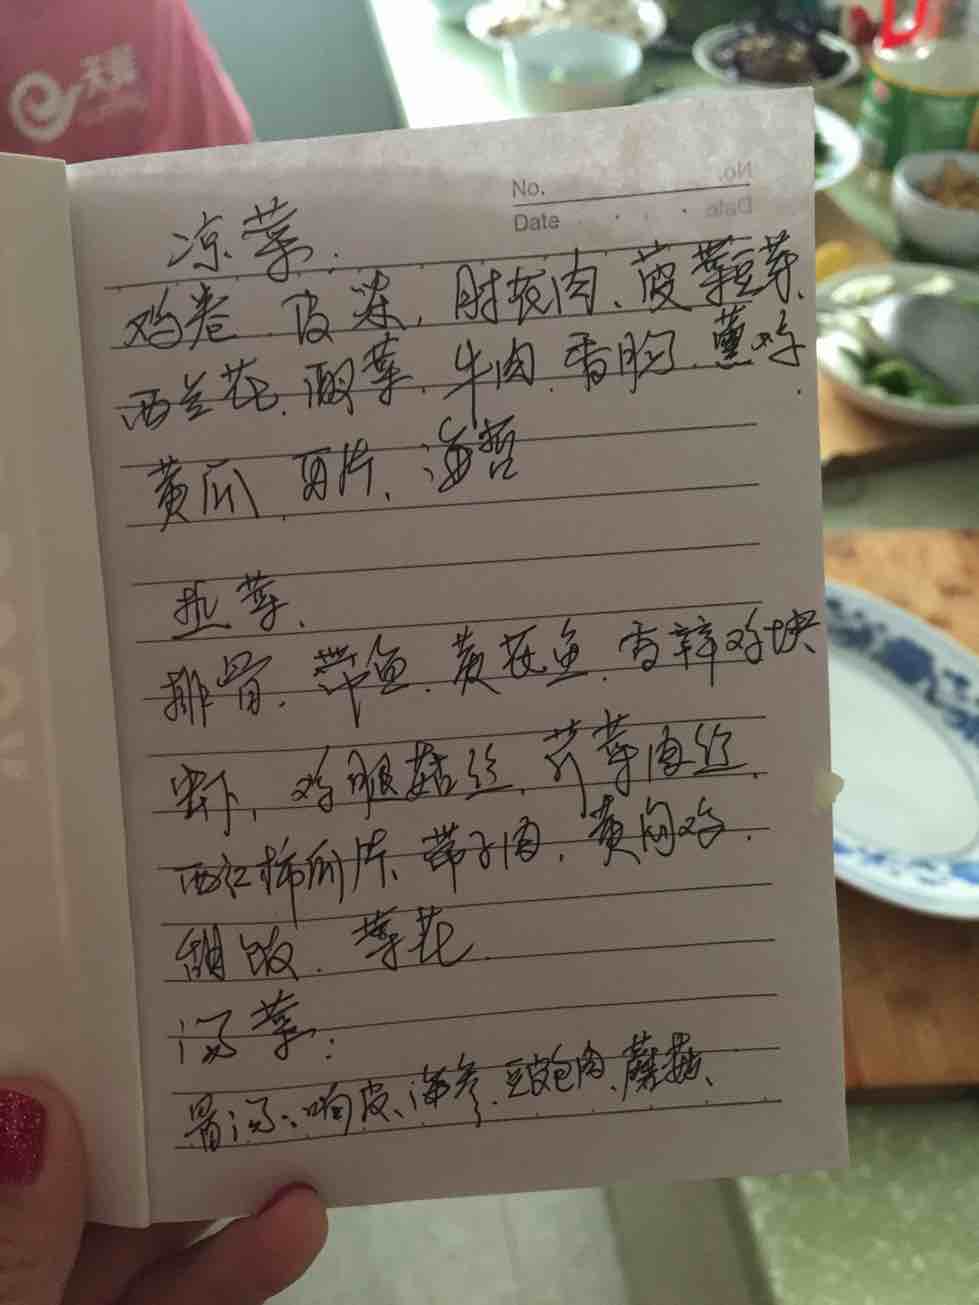 天翼
No.
Date
凉菜.
鸡卷 皮冻, 肘花肉、菠菜豆芽、
西兰花、酸菜、牛肉、香肠、薰鸡.
黄瓜、耳片、海哲
热菜、
排骨、带鱼、黄花鱼、香辣鸡块
虾、鸡腿菇丝、芹菜肉丝、
西红柿瓜片、带子肉、黄闷鸡.
甜饭、菜花
汤菜:
骨汤:响皮、海参、豆皮包肉、蘑菇、